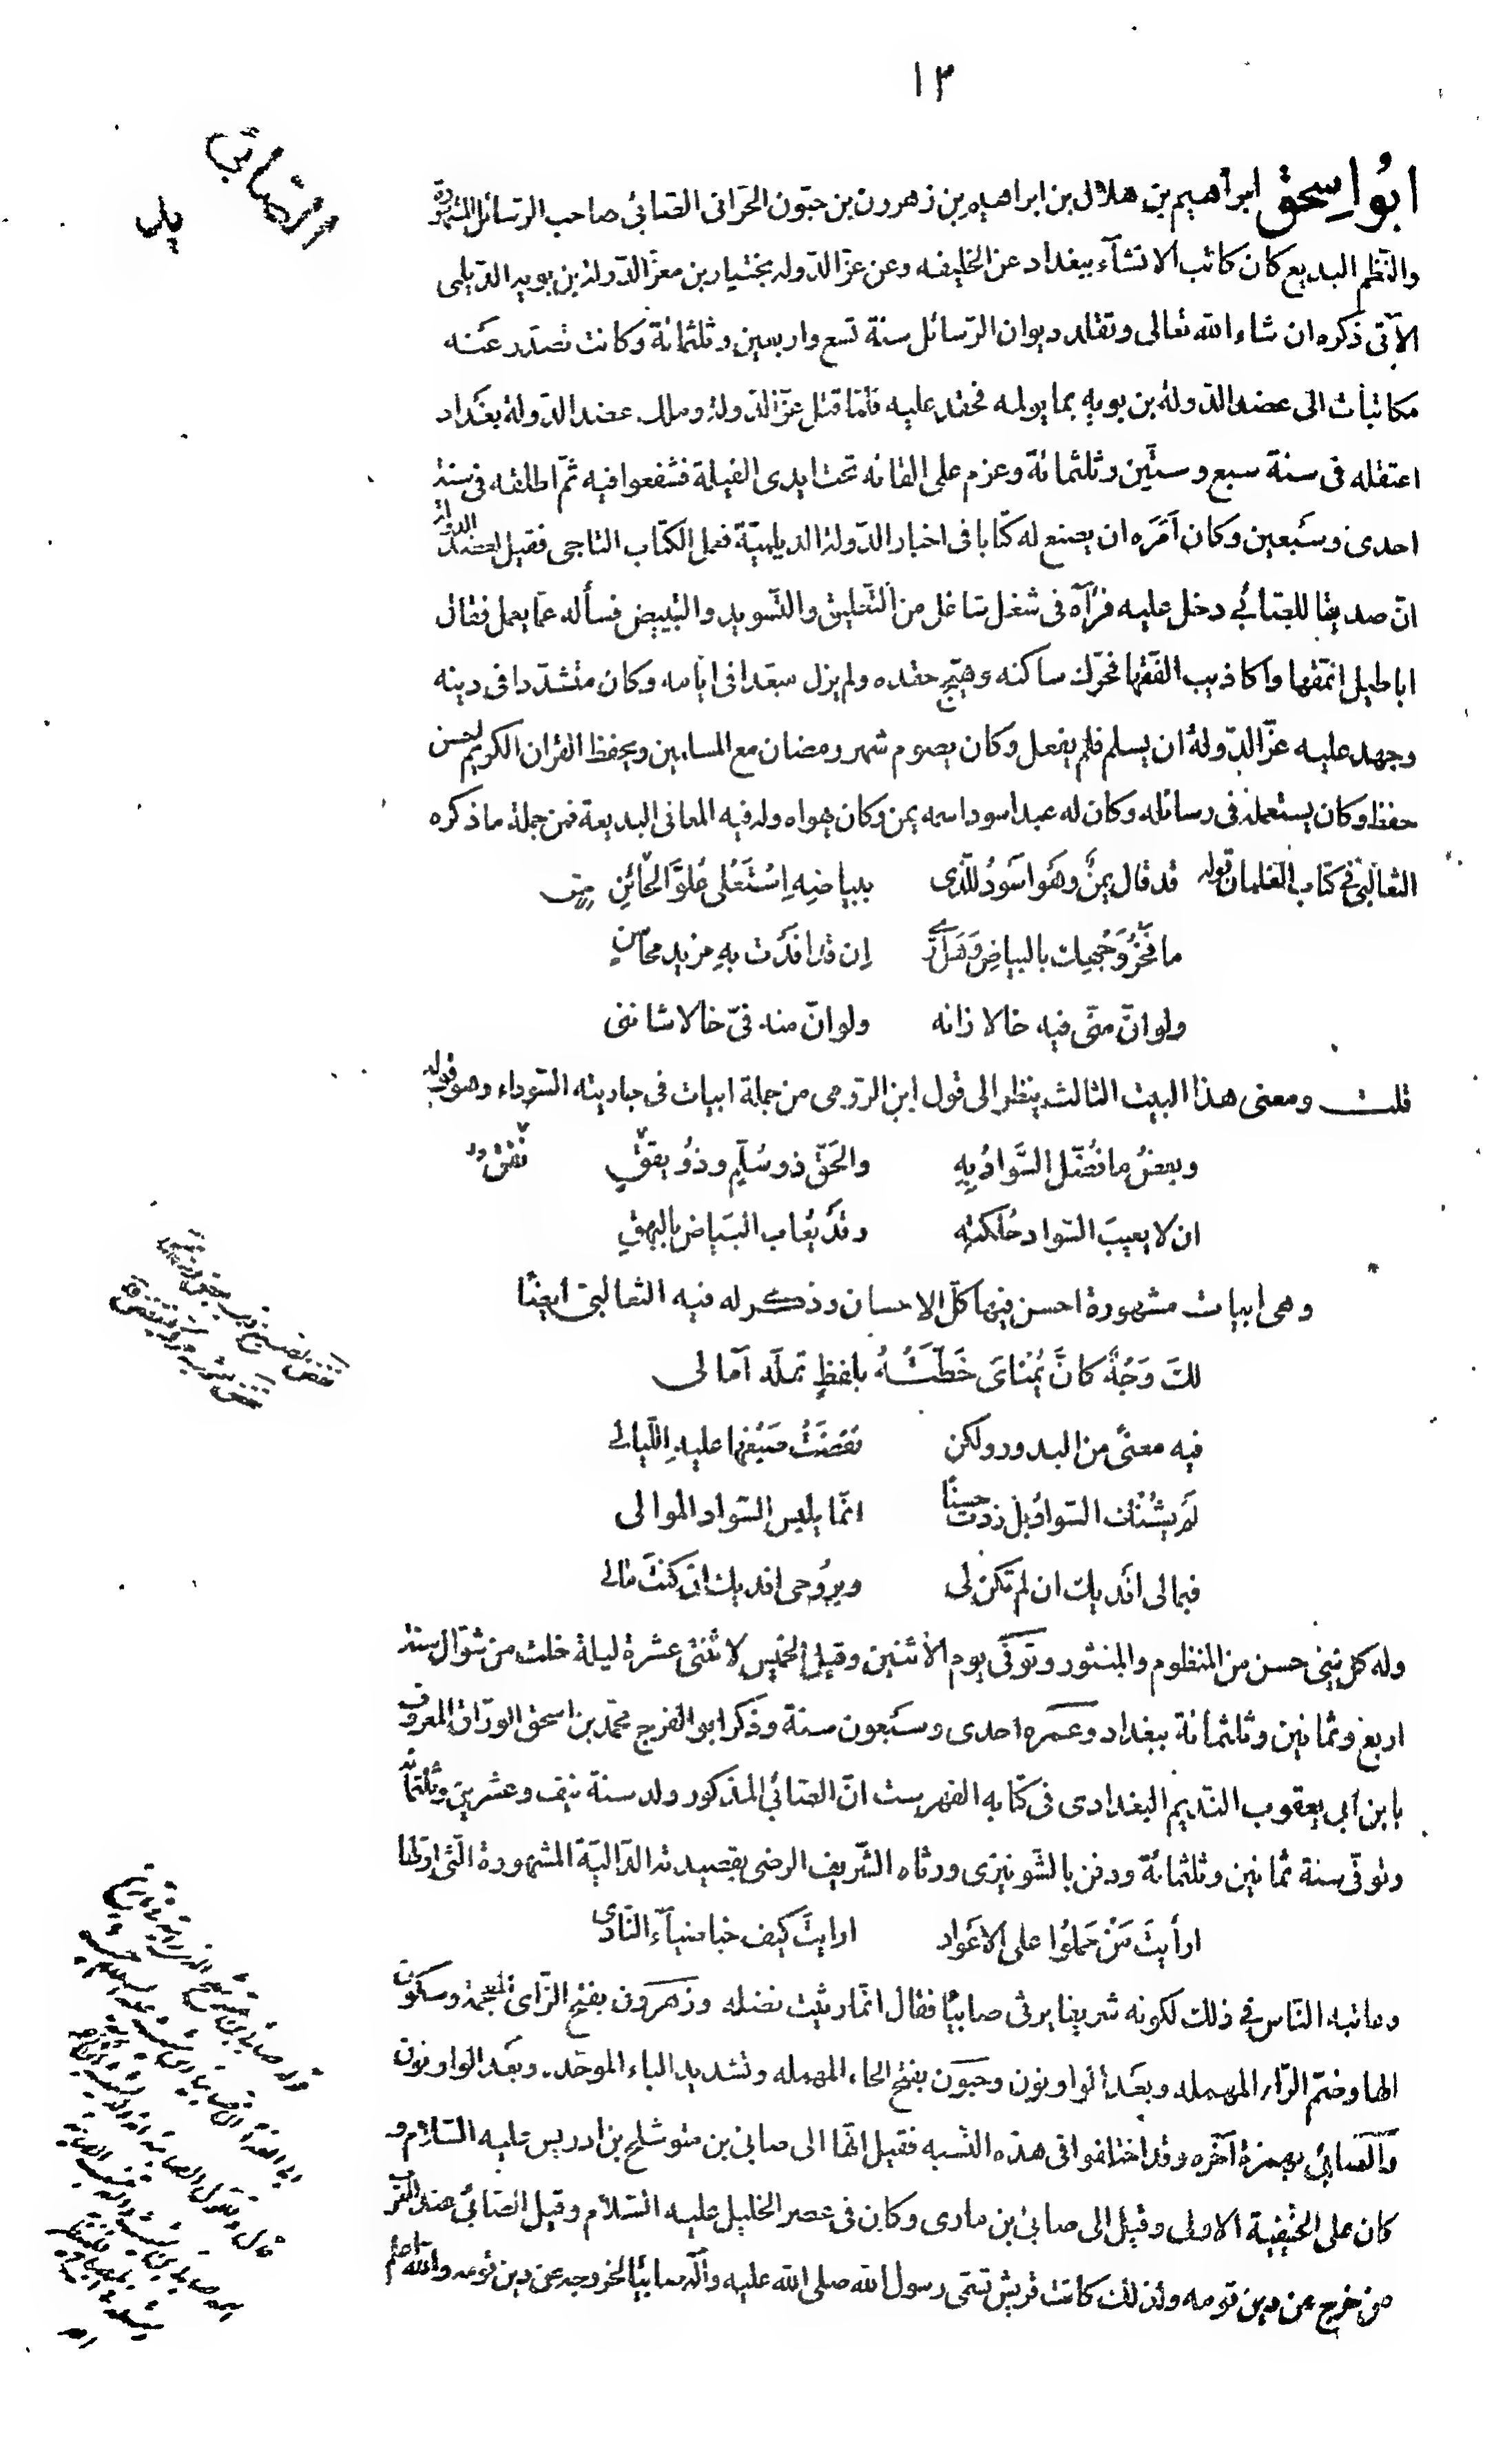 ١٣
الصّابئ
ابُو اسِحٰق ابراهيم بن هلال بن ابراهيم بن زهرون بن حبّون الحرّانى الصّابئ صاحب الرّسائل المشهورة
والنّظم البديع كان كاتب الانشآء ببغداد عن الخليفه وعن عزّ الدّوله بختيار بن معزّ الدّولة بن بويه الدّيلمى
الآتى ذكره ان شاء الله تعالى وتقلد ديوان الرّسائل سنة تسع واربعين وثلثمائة وكانت تصدر عنه
مكاتبات الى عضد الدّولة بن بويه بما يولمه فحقد عليه فلمّا قتل عزّ الدّولة وملك عضد الدّولة بغداد
اعتقله فى سنة سبع وستّين وثلثمائة وعزم على القائه تحت ايدى الفيلة فشفعوا فيه ثمّ اطلقه فى سنة
احدى وسبعين وكان امَرَه ان يصنع له كتابا فى اخبار الدّولة الديلميّة فعمل الكتاب التاجى فقيل لعضد الدولة
انّ صديقا للصّابئ دخل عليه فرآه فى شغل شاغل من التّعليق والتّسويد والتبييض فسأله عمّا يعمل فقال
اباطيل انمّقها واكاذيب الفّقها فحرّك ساكنه وهيّج حقده ولم يزل مبعدا فى ايّامه وكان متشدّدا فى دينه
وجهد عليه عزّ الدّولة ان يسلم فلم يفعل وكان يصوم شهر رمضان مع المسلمين ويحفظ القرآن الكريم احسن
حفظ وكان يستعمله فى رسائله وكان له عبد اسود اسمه يمن وكان يهواه وله فيه المعانى البديعة فمن جملة ما ذكره
الثعالبىّ فى كتاب الغلمان قوله قد قال يمنٌ وهَو اسَودُ للّذى ببياضِهِ اِسْتَعْلى عُلوَّ الخائنِ
ما فَخْرُ وَجْهِك بالبياضِ وَهَل تَرى اِن قد افَدْت بهِ مزيد محاسنٍ
ولو انّ منّى فيه خالا زانه ولو انّ منه فىّ خالا شاننى
قلت ومعنى هذا البيت الثالث ينظر الى قول ابن الرّومى من جملة ابيات فى جاريته السّوداء وهو قوله
وبعضُ ما فُضّل السَّوادُ بِهِ والحَقّ ذو سُلّمٍ وذُو نفقٍ
ان لا يعيبَ السّواد حُلكتِه وقدْ يُعاب البَياض بالبهقِ
وهى ابيات مشهورة احسن فيها كلّ الاحسان وذكر له فيه الثعالبىّ ايضًا
لكَ وَجْهٌ كانَّ يُمْناىَ خَطّتْهُ بلفظٍ تملّه آمالى
فيه معنىً من البدور ولكن نفضَتْ صَبْغها عليهِ اللّيالى
لَم يَشُنْك السّوادُ بل زدت حسنًا انّما يلبس السّواد الموالى
فبمالى افْديك ان لم تكن لى وبرُوحى افديك ان كنتَ مالى
وله كل شئ حسن من المنظوم والمنثور وتوفّى يوم الاثنين وقيل الخميس لاثنتى عشرة ليلة خلت من شوّال سنة
اربع وثمانين وثلثمائة ببغداد وعمره احدى وسبعون سنة وذكر ابو الفرج محمّد بن اسحق الورّاق المعروف
بابن ابى يعقوب النّديم البغدادى فى كتابه الفهرست انّ الصّابئ المذكور ولد سنة نيف وعشرين وثلثمائة
وتوفّى سنة ثمانين وثلثمائة ودفن بالشّونيزى ورثاه الشّريف الرضى بقصيدته الدّاليّة المشهورة الّتى اوّلها
ارأيتَ مَنْ حَملُوا على الاعْواد ارايتَ كيف خبا ضيآء النّادى
وعاتبه النّاس فى ذلك لكونه شريفا يرثى صابيًا فقال انّما رثيت فضله وزهرون بفتح الزّاى المعجمة وسكون
الها وضمّ الرّاء المهمله وبعد الواو نون وحبّون بفتح الحاء المهمله وتشديد الباء الموحّده وبعد الواو نون
والصّابئ بهمزة آخره وقد اختلفوا فى هذه النّسبه فقيل انّها الى صابئ بن متوشلح بن ادريس عليه السّلام و
كان على الحنيفيّة الاولى وقيل الى صابئ بن مارى وكان فى عصر الخليل عليه السّلام وقيل الصّابئ عند العرب
من خرج عن دين قومه ولذلك كانت قريش تسمّى رسول الله صلى الله عليه وآله صابئا لخروجه عن دين قومه والله اعلم